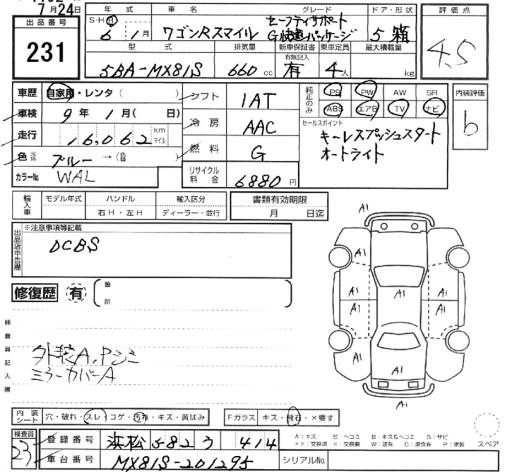 7月24日
出品番号
231
年式 車名 グレード ドア・形状 評価点
S・H 6年1月 ワゴンRスマイル セーフティサポート
G快適パッケージ 5 箱 4.5
型式 排気量 新車保証書 有無記入 乗車定員 最大積載量
5BA-MX81S 660cc 有 4人 kg
車歴 自家用・レンタ( ) シフト 1AT 純正のみ PS PW AW SR 内装評価
車検 9年1月(日) ABS エアB TV ナビ b
走行 16,062 km マイル 冷房 AAC セールスポイント
キーレスプッシュスタート
オートライト
色 ブルー→( ) 燃料 G
カラーNo. WAL リサイクル料金 6880円
輸入車 モデル年式 ハンドル 輸入区分 書類有効期限
右H・左H ディーラー・並行 月 日迄
※注意事項等記載
DCBS
修復歴 有 箇所
検査員記入欄
外装A,Pシミ
ミラーカバーA
A1
A1
A1 A1 A1
A1 A1 A1
A1
内装シート 穴・破れ・スレ・コゲ・汚れ・キズ・黄ばみ Fガラス キズ・飛石・×要す
A:キズ U:ヘコミ B:キズ&ヘコミ S:サビ
X:交換済 X:交換要 W:波有 C:腐食有 P:塗装 スペア
検査員 23
登録番号 浜松 582 う 414
車台番号 MX81S-201295 シリアルNo.